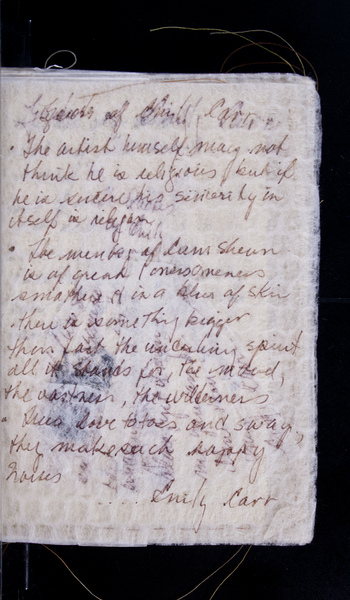 of Emily Carr
• The artist himself may not
think he is religious, but if
he is sincere his sincerity in
itself is religion
• The memory of Cumshewa
is of great lonesomeness
smothered in a blur of
there is something bigger
than fact the underlying spirit
all it stands for, the mood,
the vastness, the wilderness
• love to toss and sway,
they make such happy
noises
..... Emily Carr